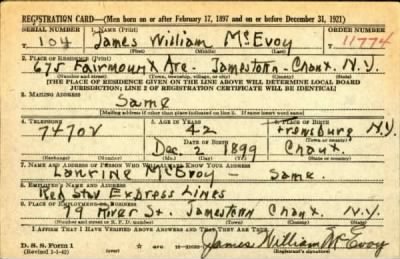 REGISTRATION CARD—(Men born on or after February 17, 1897 and on or before December 31, 1921)
SERIAL NUMBER 1. NAME (Print) ORDER NUMBER
T 104 James William McEvoy 11774
(First) (Middle) (Last)
2. PLACE OF RESIDENCE (Print)
675 Fairmount Ave. Jamestown - Chaut. N.Y.
(Number and street) (Town, township, village, or city) (County) (State)
[THE PLACE OF RESIDENCE GIVEN ON THE LINE ABOVE WILL DETERMINE LOCAL BOARD
JURISDICTION; LINE 2 OF REGISTRATION CERTIFICATE WILL BE IDENTICAL]
3. MAILING ADDRESS
Same
(Mailing address if other than place indicated on line 2. If same insert word same)
4. TELEPHONE 5. AGE IN YEARS 6. PLACE OF BIRTH
7470V 42 Frewsburg N.Y.
DATE OF BIRTH
Dec. 2 1899 Chaut.
(Exchange) (Number) (Mo.) (Day) (Yr.) (Town or county) (State or country)
7. NAME AND ADDRESS OF PERSON WHO WILL ALWAYS KNOW YOUR ADDRESS
McEvoy — Same.
8. EMPLOYER'S NAME AND ADDRESS
Red Star Express Lines
9. PLACE OF EMPLOYMENT OR BUSINESS
19 River St. Jamestown Chaut. N.Y.
(Number and street or R. F. D. number) (Town) (County) (State)
I AFFIRM THAT I HAVE VERIFIED ABOVE ANSWERS AND THAT THEY ARE TRUE.
D. S. S. Form 1
(Revised 1-1-42) James William McEvoy